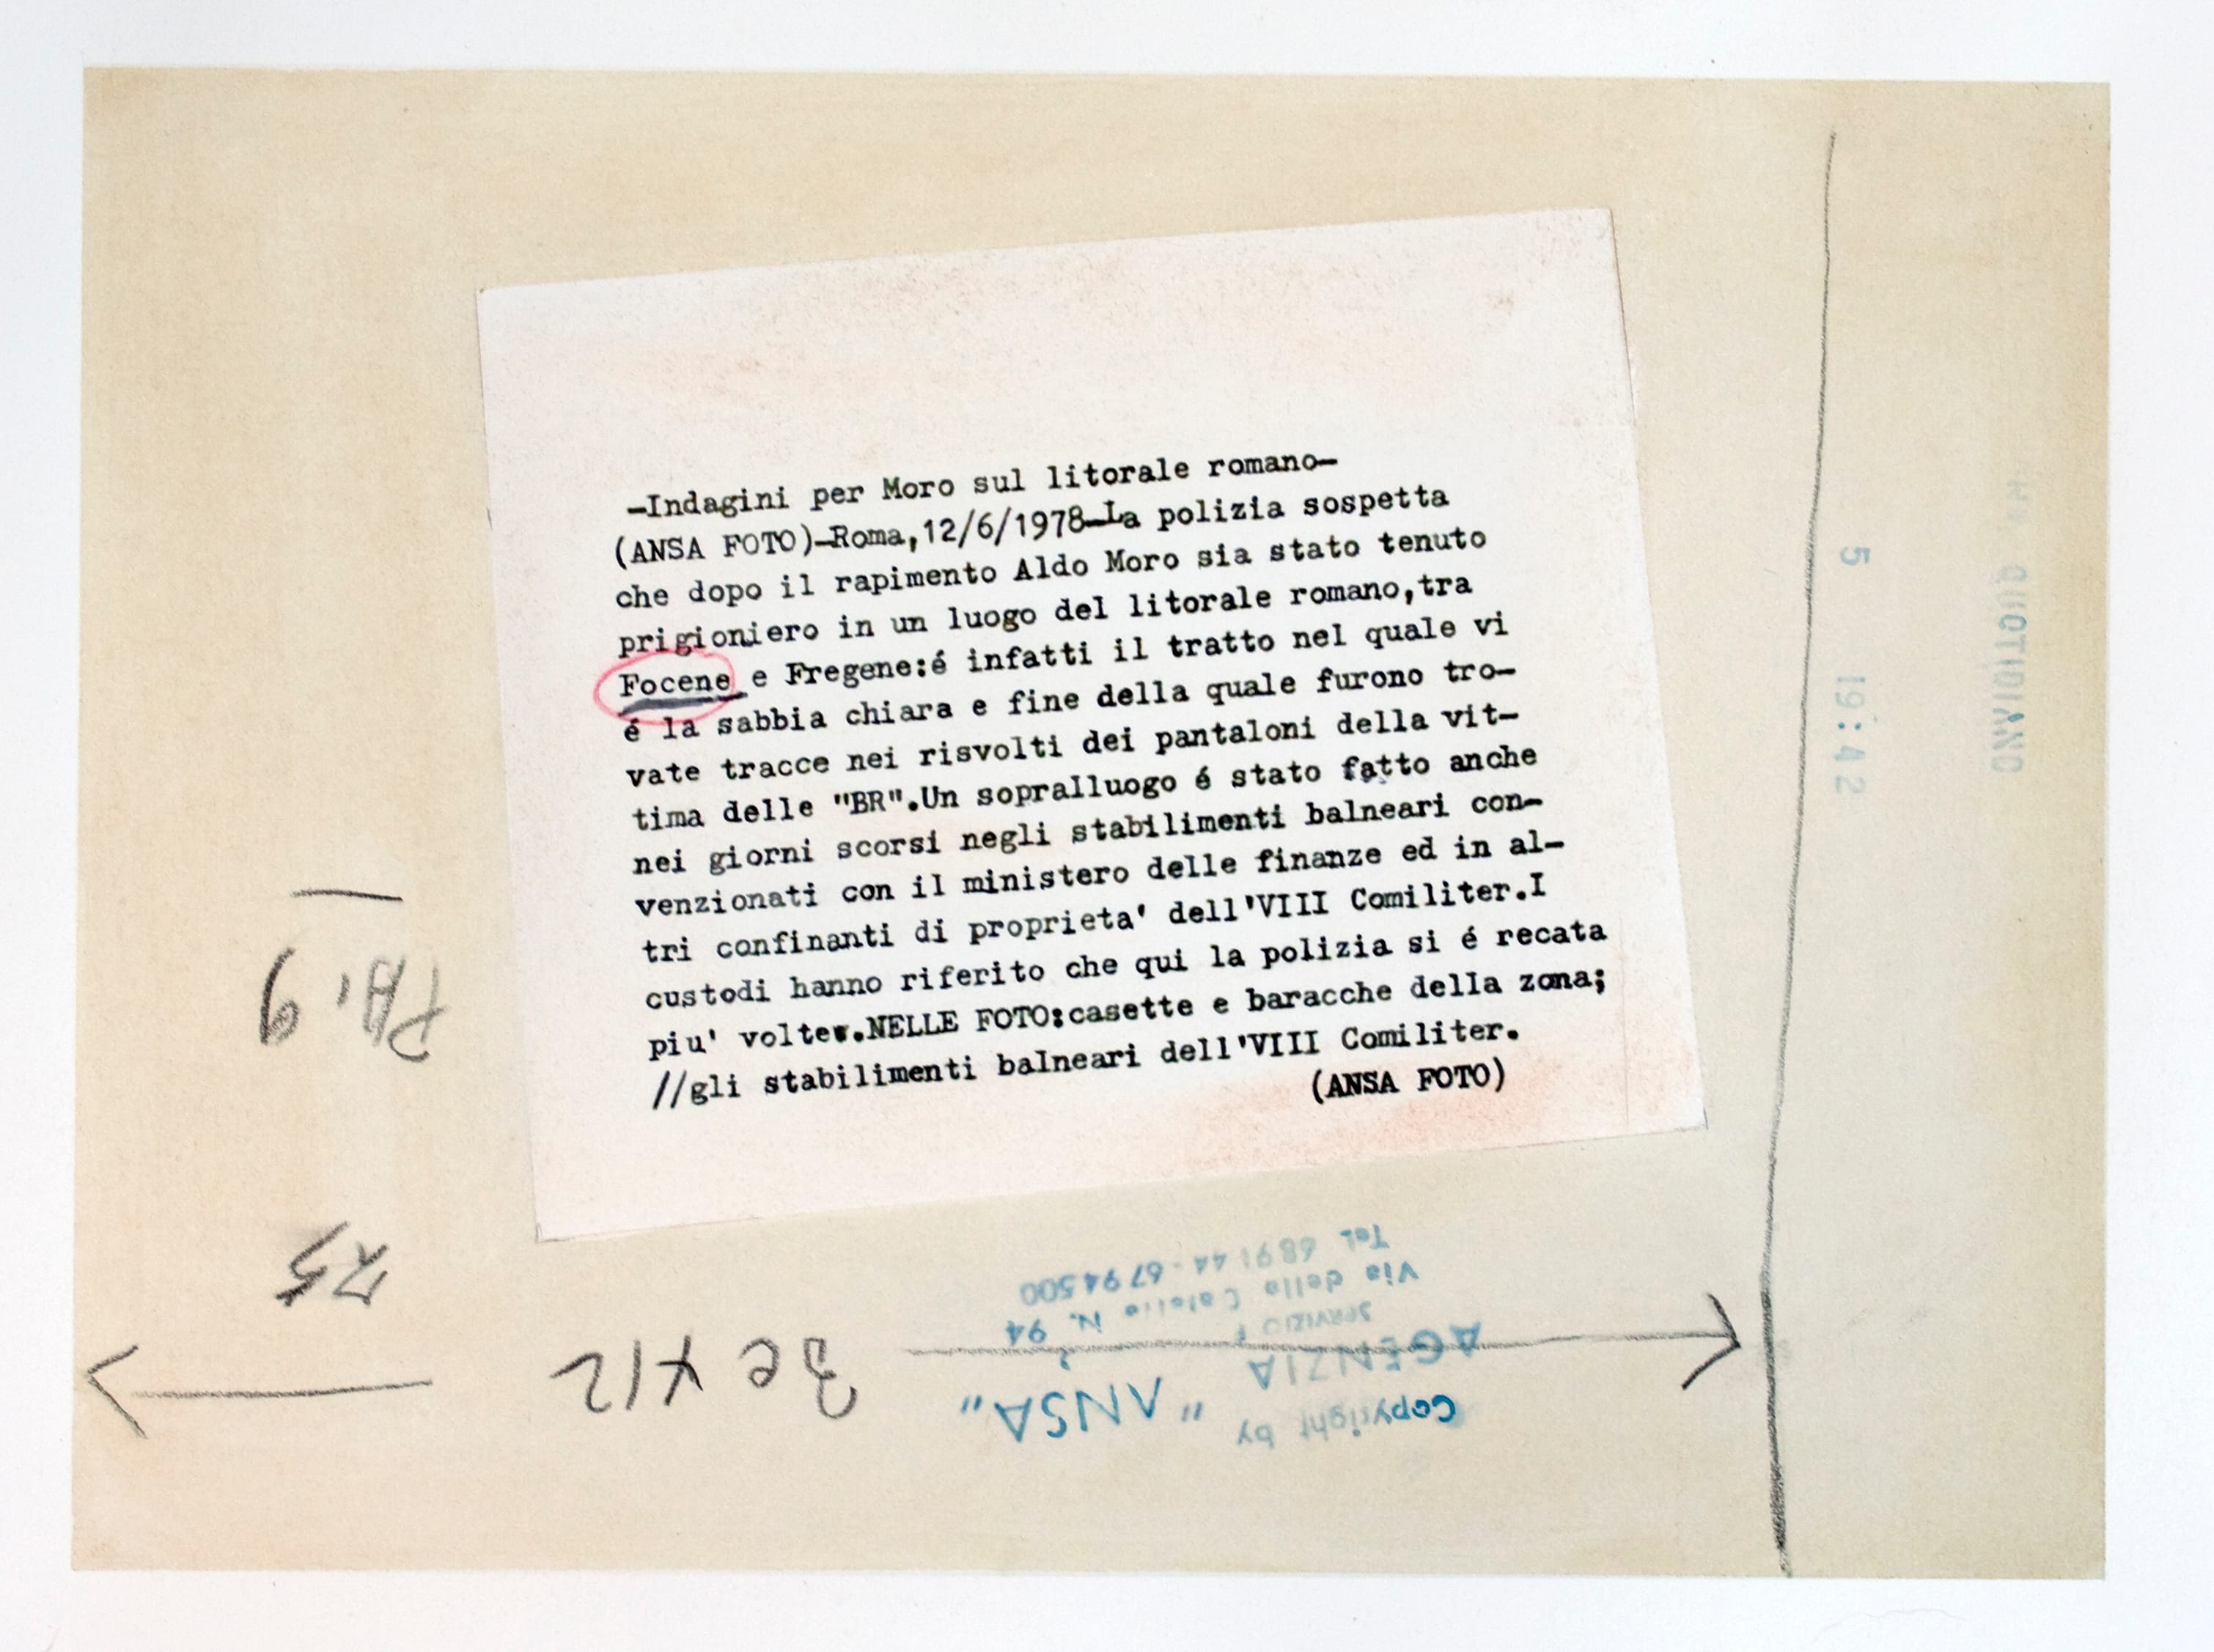 -Indagini per Moro sul litorale romano-
(ANSA FOTO)-Roma,12/6/1978-La polizia sospetta
che dopo il rapimento Aldo Moro sia stato tenuto
prigioniero in un luogo del litorale romano,tra
Focene e Fregene:é infatti il tratto nel quale vi
é la sabbia chiara e fine della quale furono tro-
vate tracce nei risvolti dei pantaloni della vit-
tima delle "BR".Un sopralluogo é stato fatto anche
nei giorni scorsi negli stabilimenti balneari con-
venzionati con il ministero delle finanze ed in al-
tri confinanti di proprieta' dell'VIII Comiliter.I
custodi hanno riferito che qui la polizia si é recata
piu' volte.NELLE FOTO:casette e baracche della zona;
//gli stabilimenti balneari dell'VIII Comiliter.
(ANSA FOTO)
5 19:42
QUOTIDIANO
PA. 9
Copyright by
AGENZIA "ANSA"
SERVIZIO
Via della N. 94
Tel. 689144-6794500